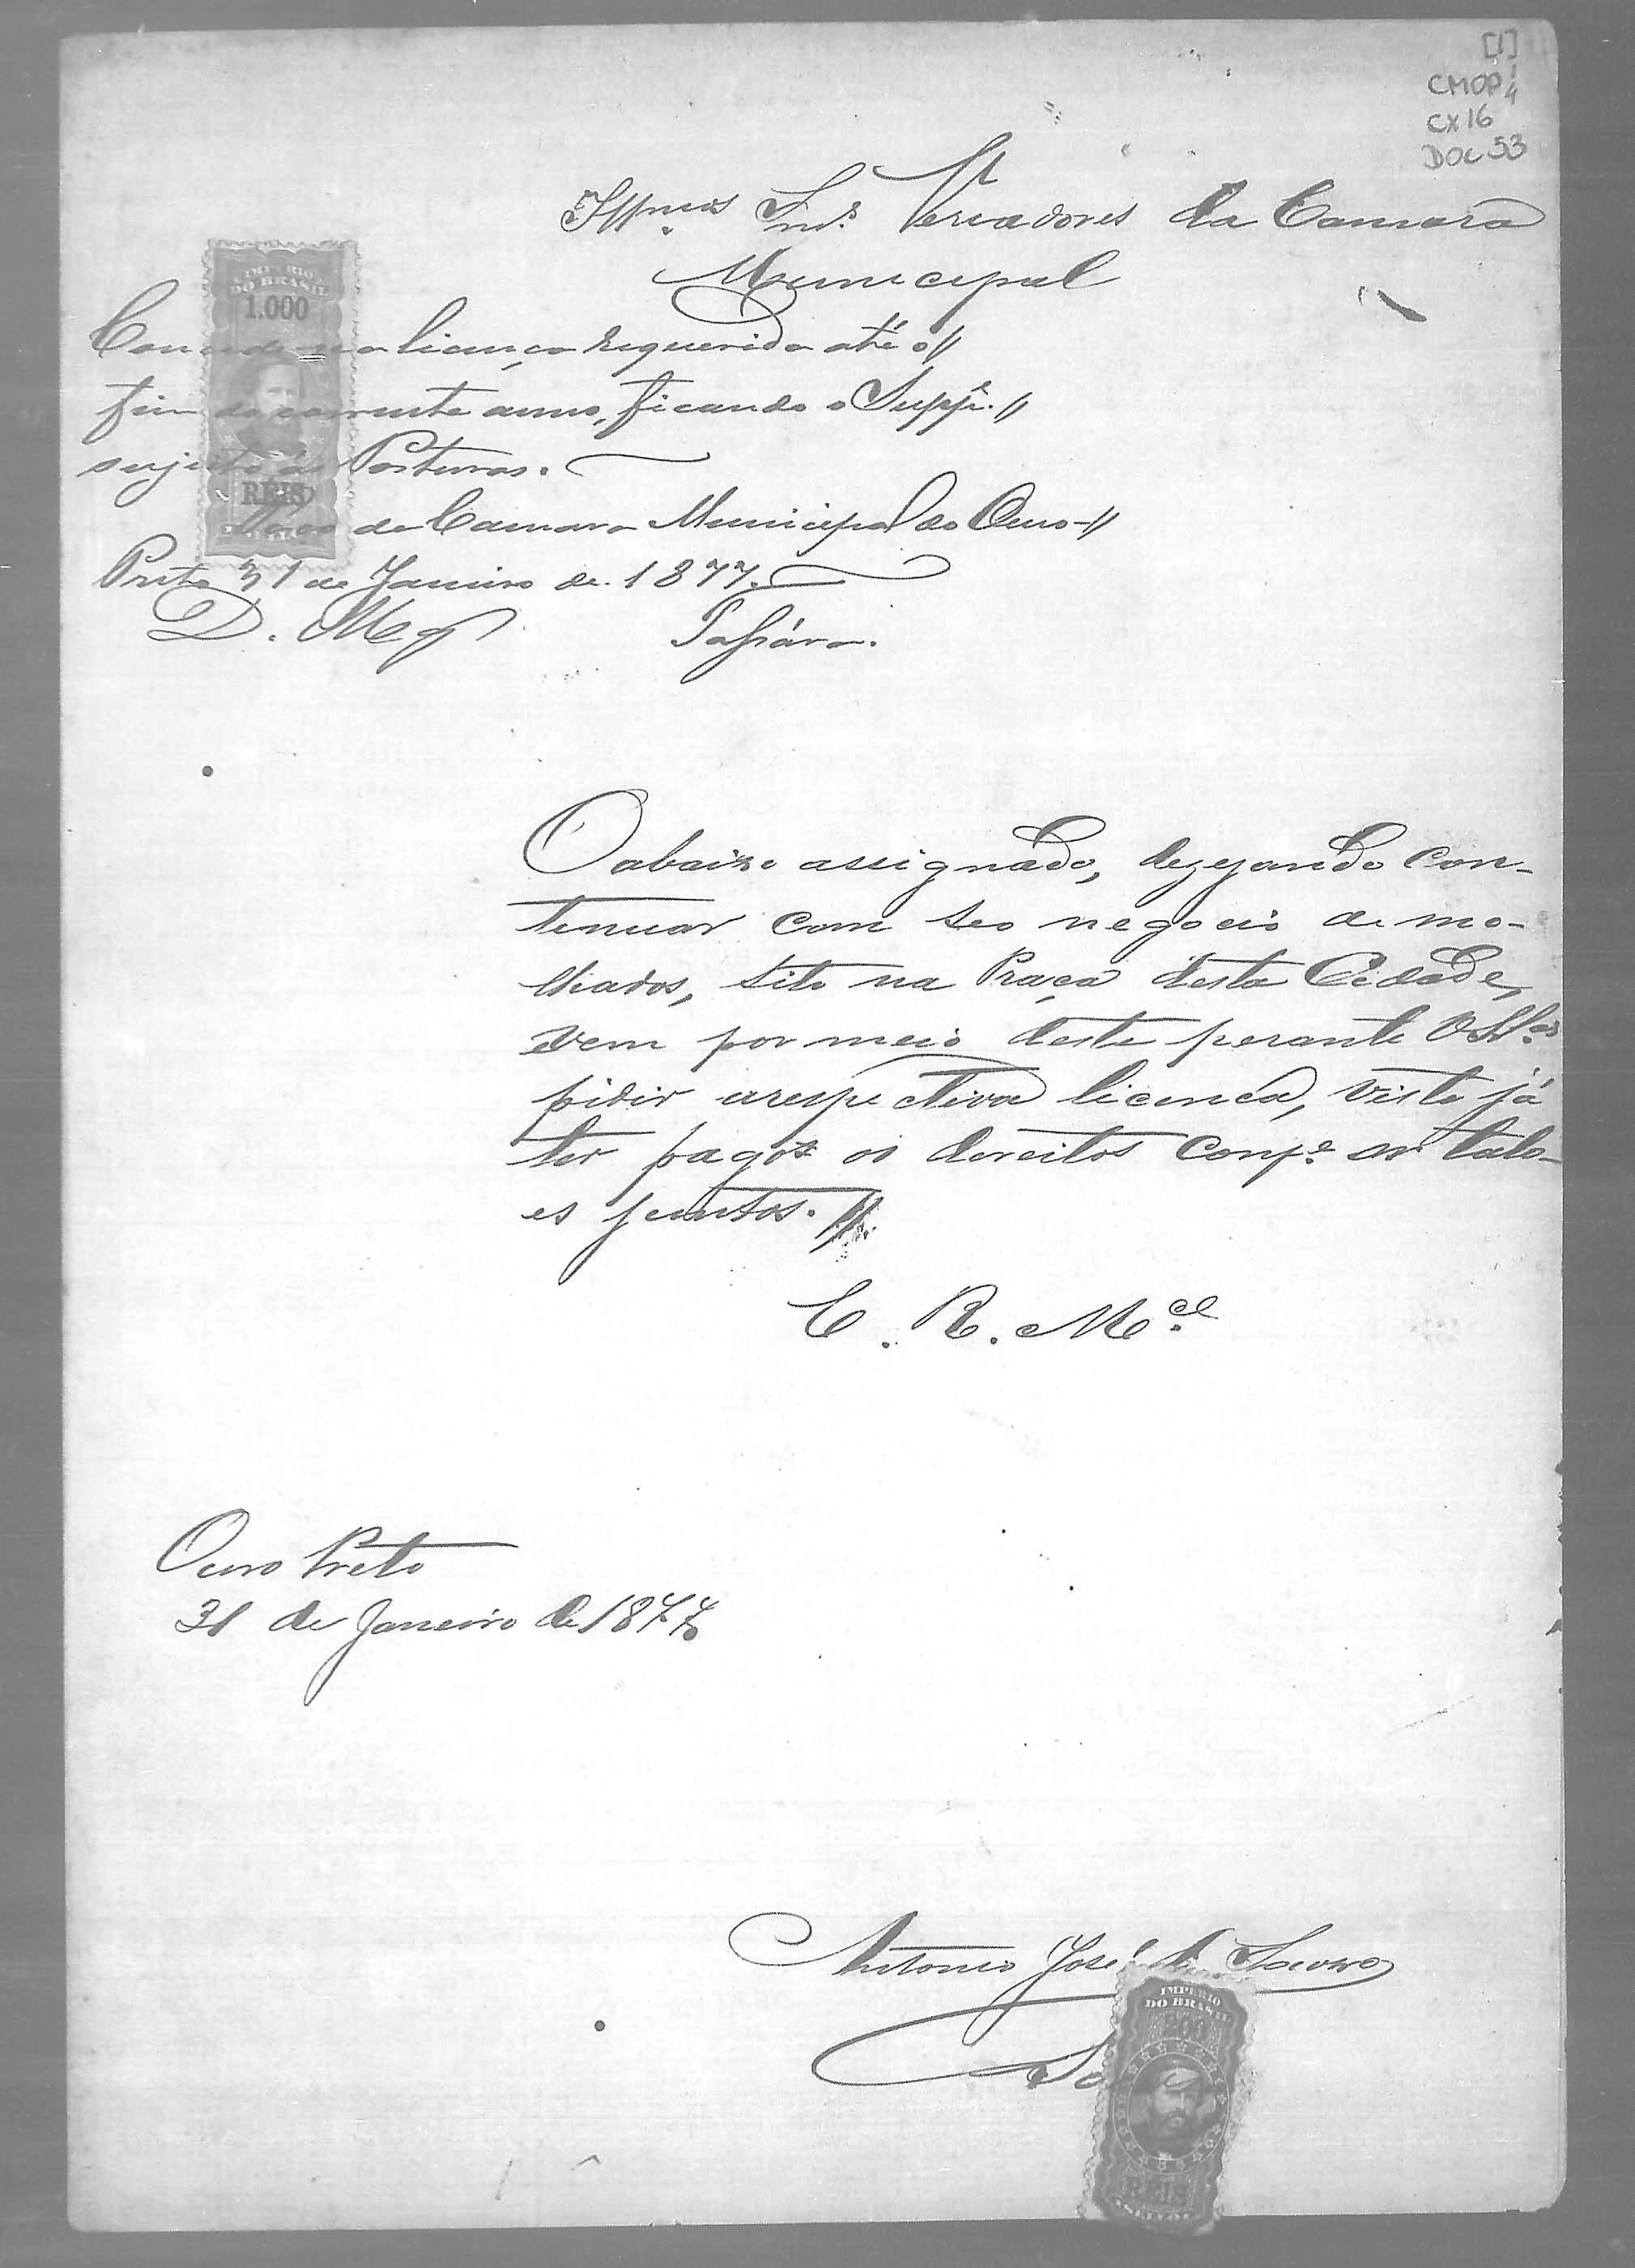 [1]
CMOP 1/4
CX 16
DOC 53
Illmos Snrs Vereadores da Camara
Municipal
IMPERIO
DO BRASIL
1.000
REIS
Concede-se a licença requerida até o //
fim do corrente anno, ficando o Suppe. //
sujeito ás Posturas.
Paço da Camara Municipal do Ouro- //
Preto 31 de Janeiro de 1877.
D. Mgs
O abaixo assignado, dezejando con-
tenuar com seo negocio de mo-
lhados, sito na Praça desta Cidade,
vem por meio deste perante VSSas
pidir a respectiva licença, visto já
ter pagos os dereitos conf.e os talo-
es juntos. //
E. R. Mce
Ouro Preto
31 de Janeiro de 1877
Antonio José de
IMPERIO
DO BRASIL
200
REIS